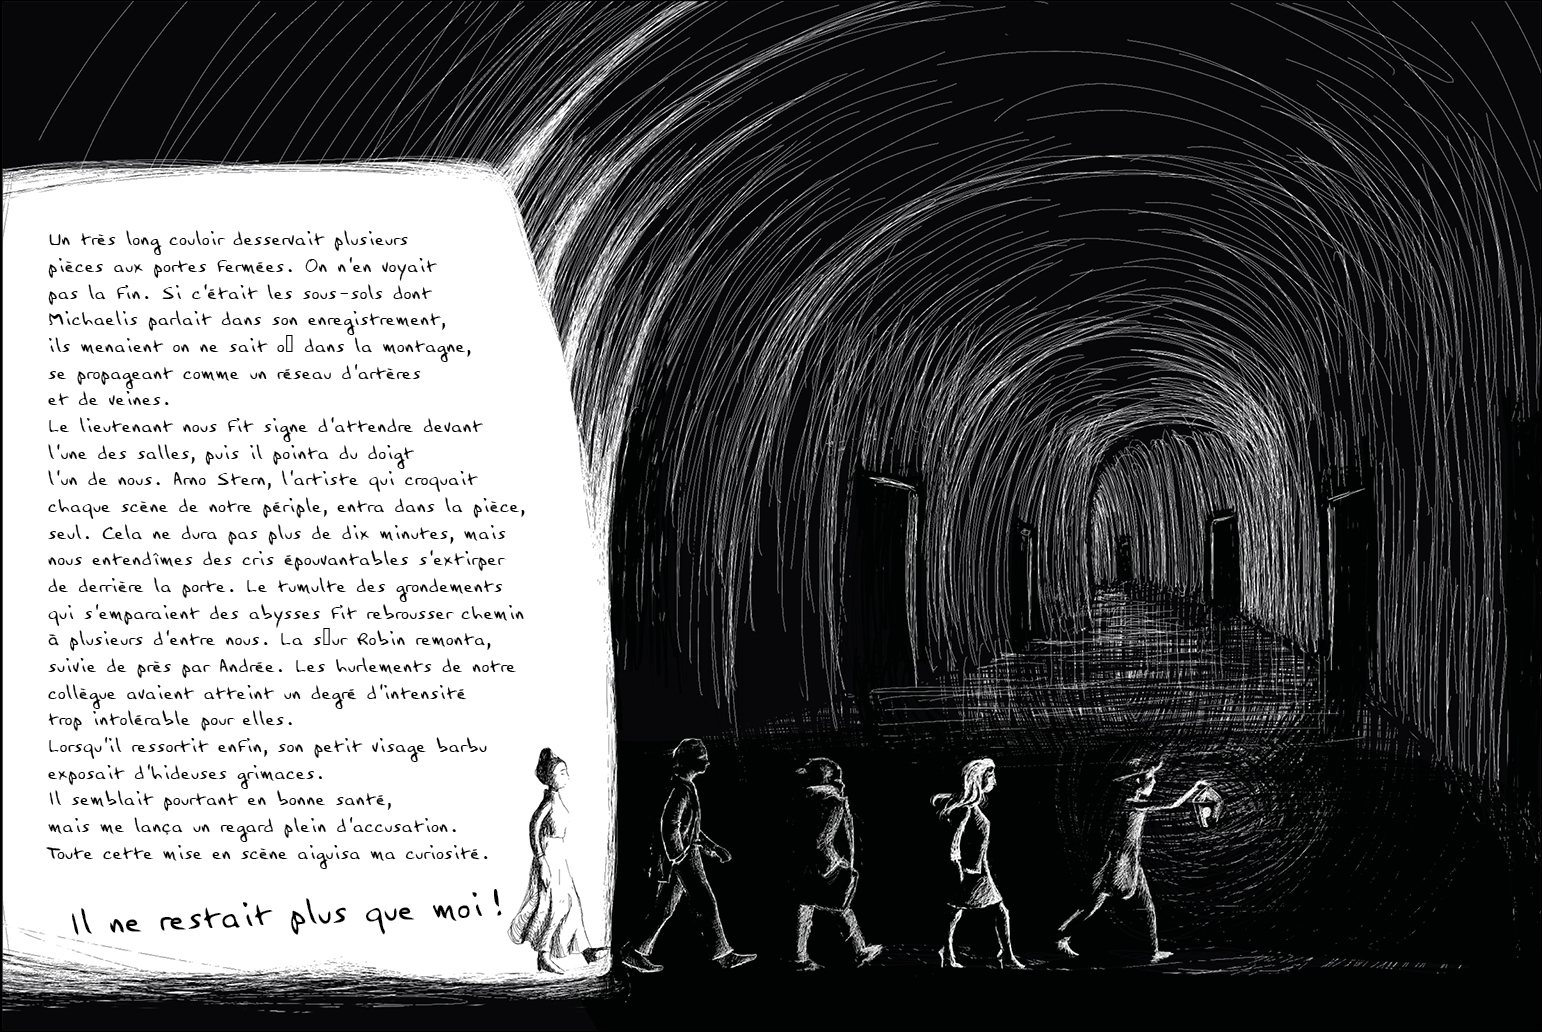 Un très long couloir desservait plusieurs
pièces aux portes fermées. On n'en voyait
pas la fin. Si c'était les sous-sols dont
Michaelis parlait dans son enregistrement,
ils menaient on ne sait o▯ dans la montagne,
se propageant comme un réseau d'artères
et de veines.
Le lieutenant nous fit signe d'attendre devant
l'une des salles, puis il pointa du doigt
l'un de nous. Arno Stern, l'artiste qui croquait
chaque scène de notre périple, entra dans la pièce,
seul. Cela ne dura pas plus de dix minutes, mais
nous entendîmes des cris épouvantables s'extirper
de derrière la porte. Le tumulte des grondements
qui s'emparaient des abysses fit rebrousser chemin
à plusieurs d'entre nous. La s▯ur Robin remonta,
suivie de près par Andrée. Les hurlements de notre
collègue avaient atteint un degré d'intensité
trop intolérable pour elles.
Lorsqu'il ressortit enfin, son petit visage barbu
exposait d'hideuses grimaces.
Il semblait pourtant en bonne santé,
mais me lança un regard plein d'accusation.
Toute cette mise en scène aiguisa ma curiosité.
Il ne restait plus que moi !